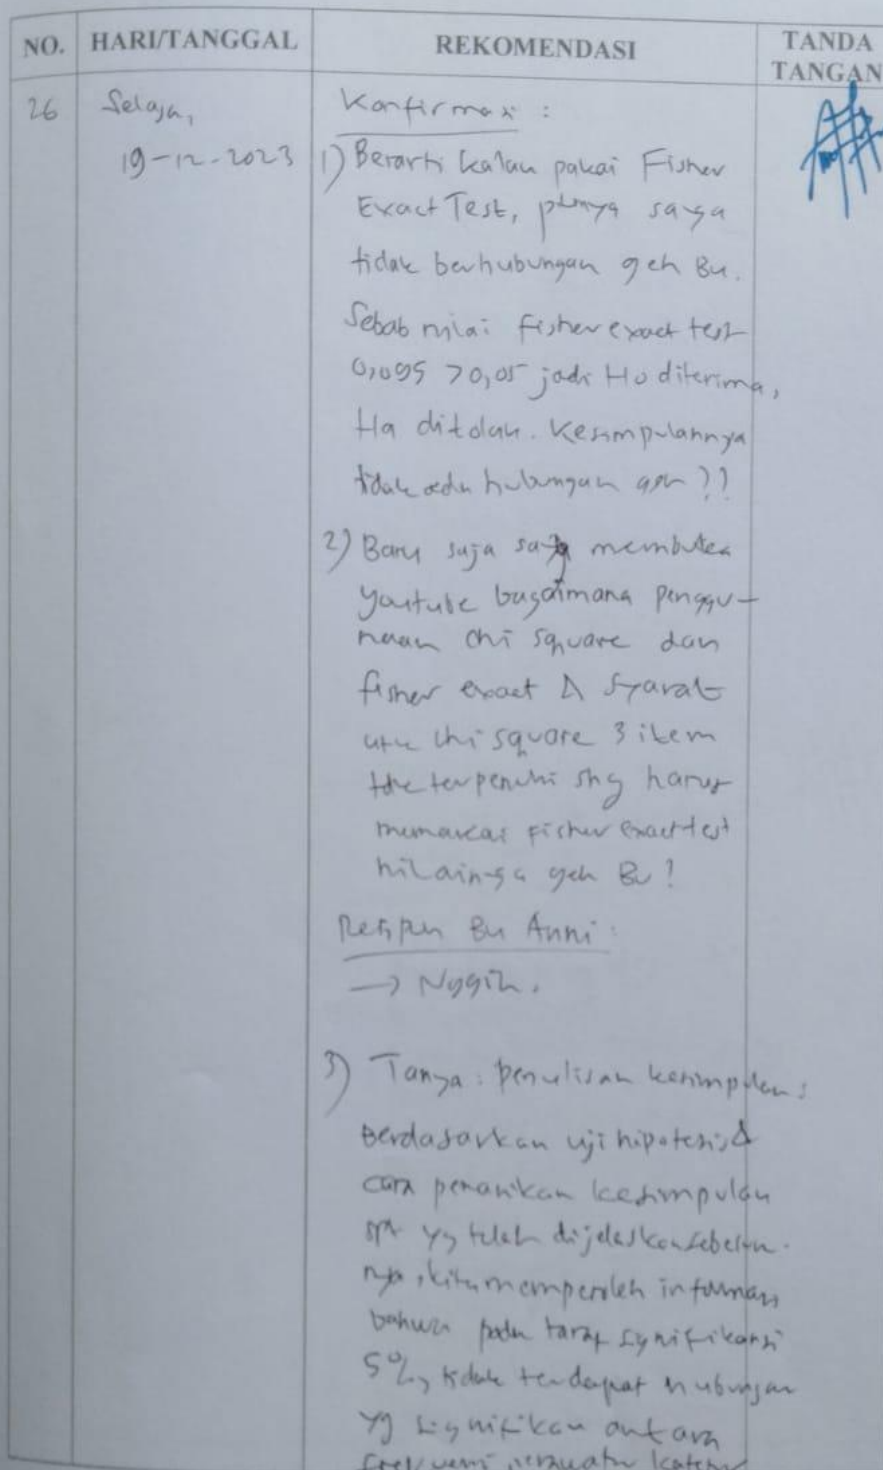 NO. HARI/TANGGAL REKOMENDASI TANDA TANGAN
26 Selasa, Konfirmasi :
19-12-2023 1) Berarti kalau pakai Fisher
Exact Test, punya saya
tidak berhubungan geh Bu.
Sebab nilai fisher exact test
0,095 > 0,05 jadi Ho diterima,
Ha ditolak. Kesimpulannya
tidak ada hubungan geh ??
2) Baru saja saya membuka
youtube bagaimana penggu-
naan chi square dan
fisher exact & syarat
utk chi square 3 item
tdk terpenuhi shg harus
memakai fisher exact test
nilainya geh Bu!
Respon Bu Anni :
→ Nggih.
3) Tanya : penulisan kesimpulan :
Berdasarkan uji hipotesis &
cara penarikan kesimpulan
yg telah dijelaskan sebelum-
nya, kita memperoleh informasi
bahwa pada taraf signifikansi
5%, tidak terdapat hubungan
yg signifikan antara
frekuensi perawatan kateter